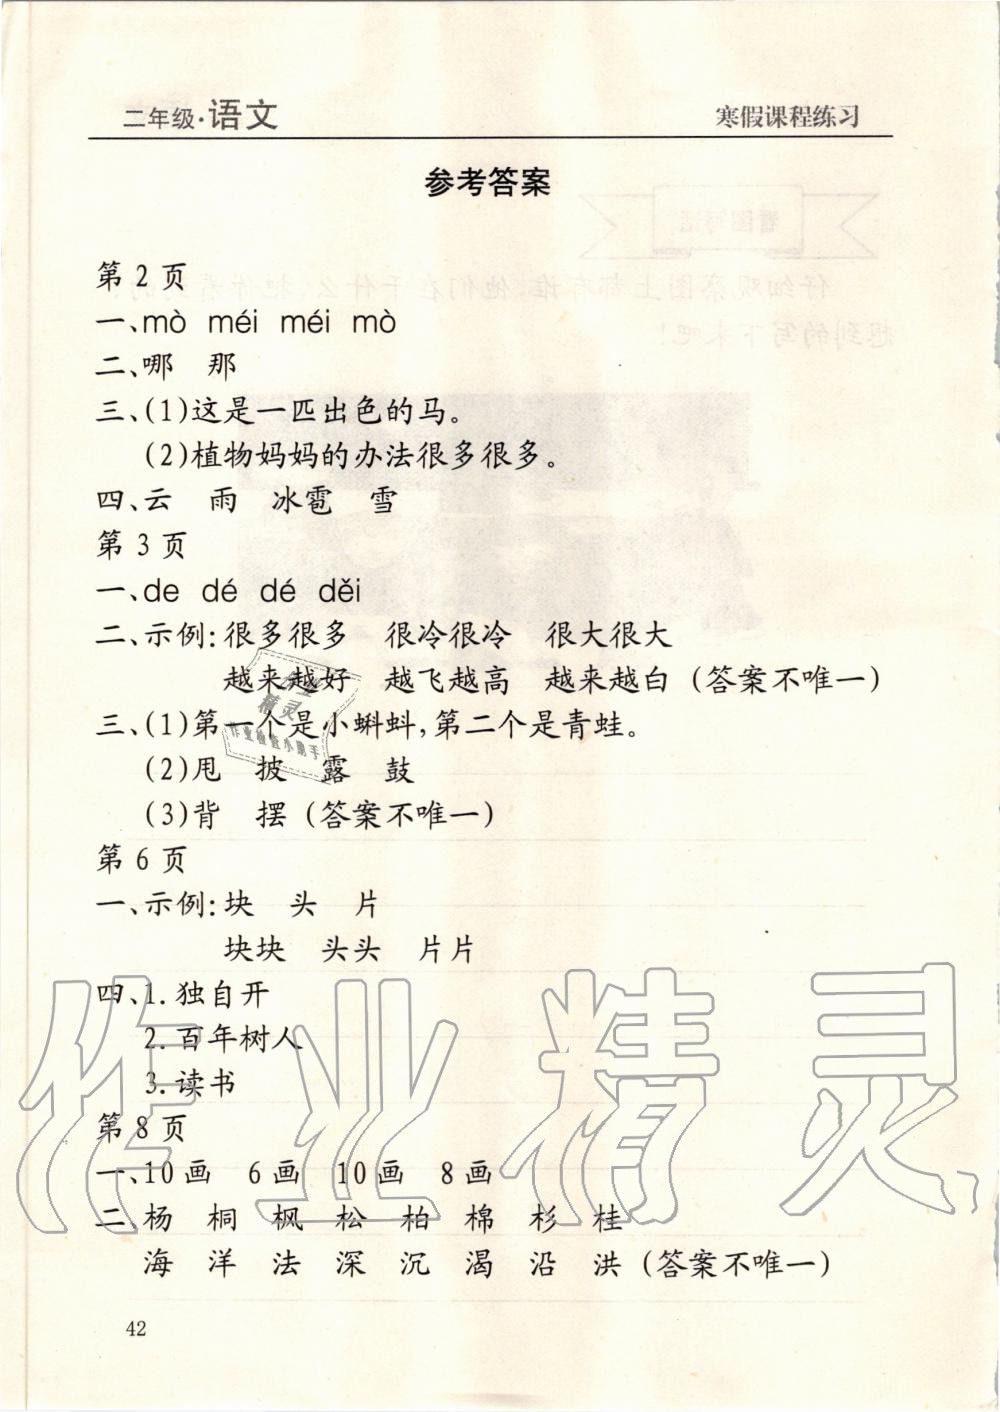 二年级·语文
寒假课程练习
参考答案
第2页
一、mò méi méi mò
二、哪 那
三、(1)这是一匹出色的马。
(2)植物妈妈的办法很多很多。
四、云 雨 冰雹 雪
第3页
一、de dé dé děi
二、示例:很多很多 很冷很冷 很大很大
越来越好 越飞越高 越来越白(答案不唯一)
三、(1)第一个是小蝌蚪,第二个是青蛙。
(2)甩 披 露 鼓
(3)背 摆(答案不唯一)
第6页
一、示例:块 头 片
块块 头头 片片
四、1.独自开
2.百年树人
3.读书
第8页
一、10画 6画 10画 8画
二、杨 桐 枫 松 柏 棉 杉 桂
海 洋 法 深 沉 渴 沿 洪(答案不唯一)
42
作业精灵
作业
精灵
作业检查小助手
看图写话
仔细观察图上都有谁,他们在干什么,把你看到的、
想到的写下来吧!